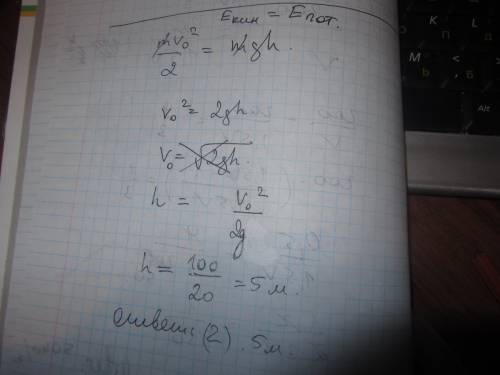 Eкин = Eпот.
mv₀²/2 = mgh.
v₀² = 2gh
v₀ = √2gh.
h = v₀²/2g
h = 100/20 = 5 м.
ответ: (2). 5м.
Alt